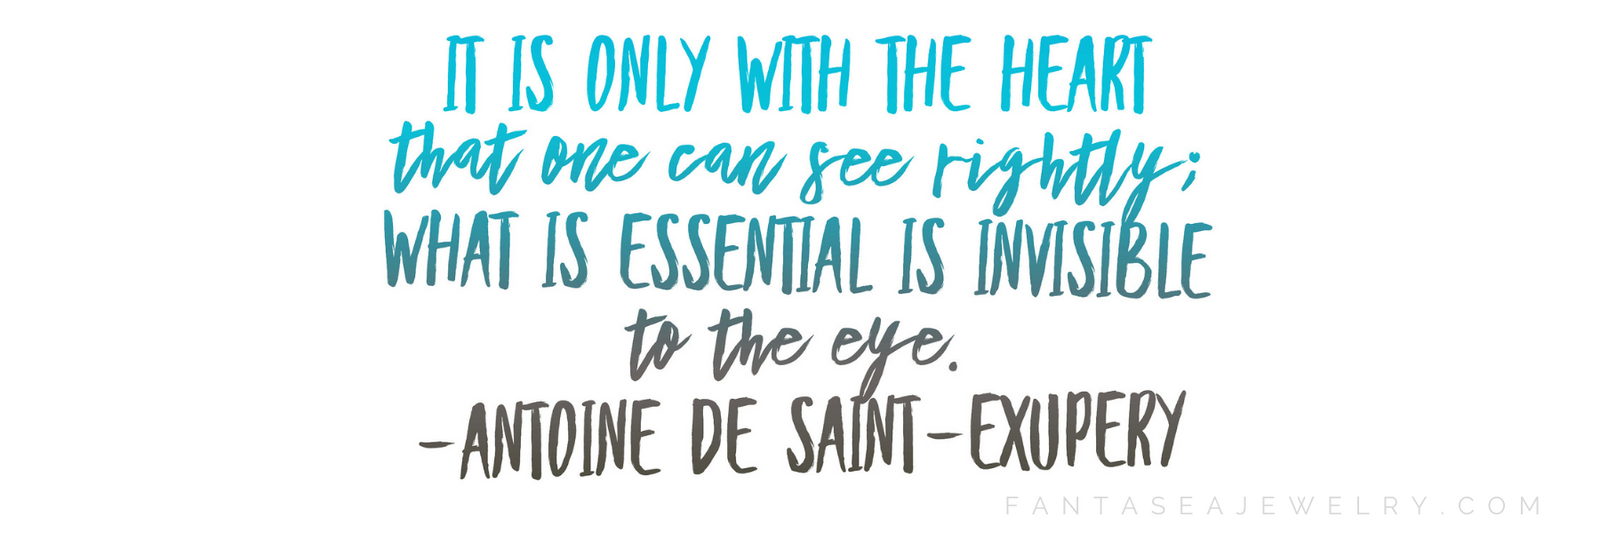 IT IS ONLY WITH THE HEART
that one can see rightly;
WHAT IS ESSENTIAL IS INVISIBLE
to the eye.
-ANTOINE DE SAINT-EXUPERY
FANTASEAJEWELRY.COM